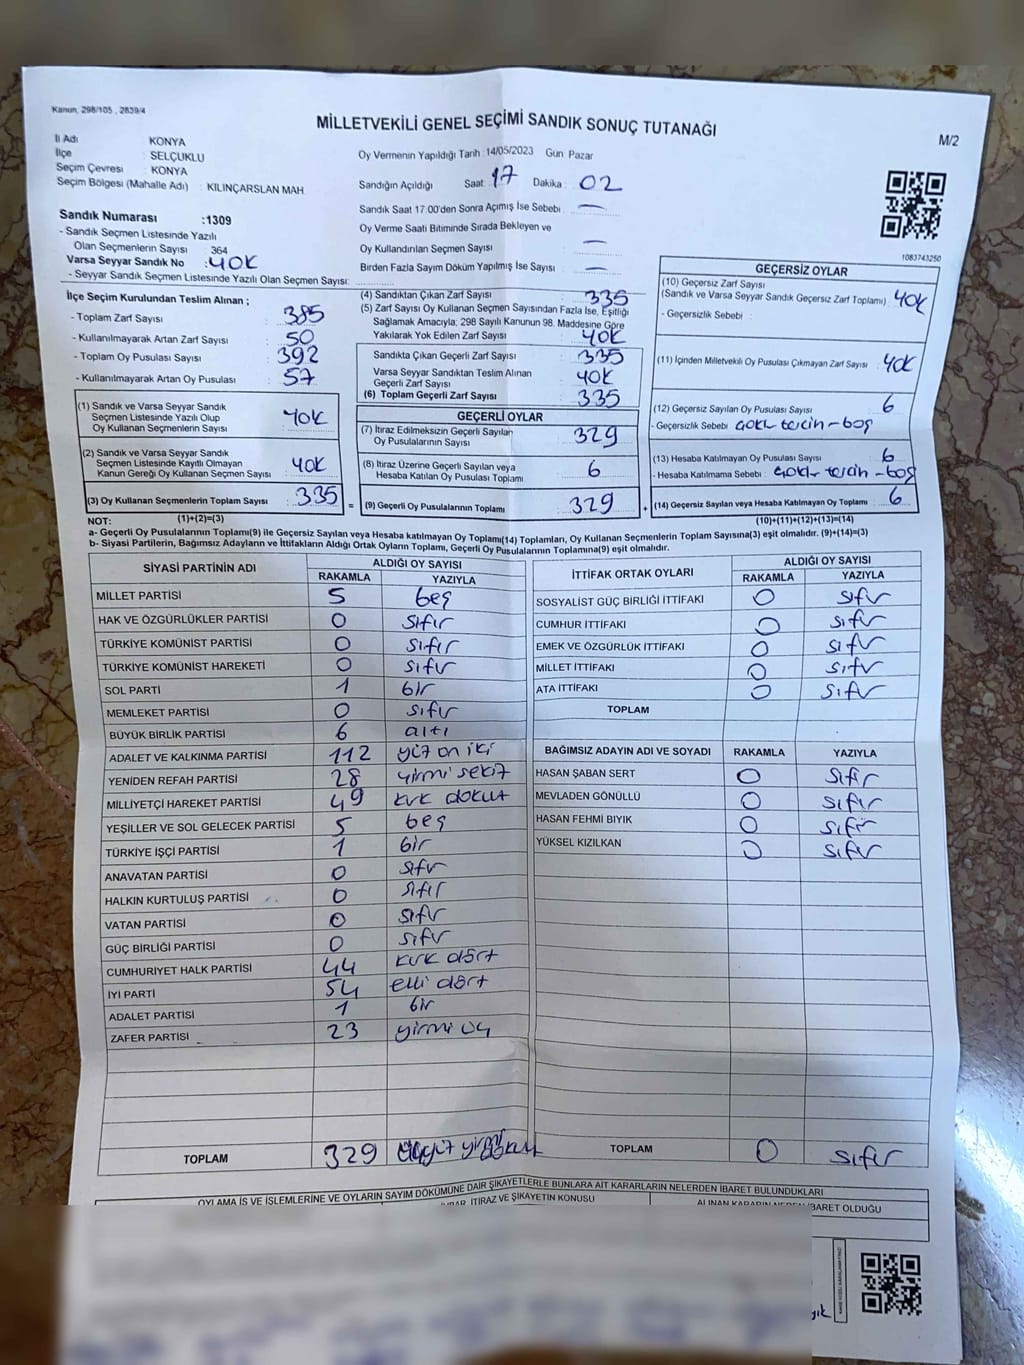 Kanun, 298/105 , 2839/4
MİLLETVEKİLİ GENEL SEÇİMİ SANDIK SONUÇ TUTANAĞI
M/2
İl Adı : KONYA
İlçe : SELÇUKLU
Seçim Çevresi : KONYA
Seçim Bölgesi (Mahalle Adı) : KILINÇARSLAN MAH
Oy Vermenin Yapıldığı Tarih : 14/05/2023 Gün : Pazar
Sandığın Açıldığı Saat : 17 Dakika : 02
Sandık Saat 17.00'den Sonra Açımış İse Sebebi : —
Oy Verme Saati Bitiminde Sırada Bekleyen ve
Oy Kullandırılan Seçmen Sayısı : —
Birden Fazla Sayım Döküm Yapılmış İse Sayısı : —
1083743250
Sandık Numarası : 1309
- Sandık Seçmen Listesinde Yazılı
Olan Seçmenlerin Sayısı : 364
Varsa Seyyar Sandık No : YOK
- Seyyar Sandık Seçmen Listesinde Yazılı Olan Seçmen Sayısı:
İlçe Seçim Kurulundan Teslim Alınan ;
- Toplam Zarf Sayısı : 385
- Kullanılmayarak Artan Zarf Sayısı : 50
- Toplam Oy Pusulası Sayısı : 392
- Kullanılmayarak Artan Oy Pusulası : 57
(1) Sandık ve Varsa Seyyar Sandık
Seçmen Listesinde Yazılı Olup
Oy Kullanan Seçmenlerin Sayısı : YOK
(2) Sandık ve Varsa Seyyar Sandık
Seçmen Listesinde Kayıtlı Olmayan
Kanun Gereği Oy Kullanan Seçmen Sayısı : YOK
(3) Oy Kullanan Seçmenlerin Toplam Sayısı : 335
(1)+(2)=(3)
(4) Sandıktan Çıkan Zarf Sayısı : 335
(5) Zarf Sayısı Oy Kullanan Seçmen Sayısından Fazla İse, Eşitliği
Sağlamak Amacıyla; 298 Sayılı Kanunun 98. Maddesine Göre
Yakılarak Yok Edilen Zarf Sayısı : YOK
Sandıkta Çıkan Geçerli Zarf Sayısı : 335
Varsa Seyyar Sandıktan Teslim Alınan
Geçerli Zarf Sayısı : YOK
(6) Toplam Geçerli Zarf Sayısı : 335
GEÇERLİ OYLAR
(7) İtiraz Edilmeksizin Geçerli Sayılan
Oy Pusulalarının Sayısı : 329
(8) İtiraz Üzerine Geçerli Sayılan veya
Hesaba Katılan Oy Pusulası Toplamı : 6
= (9) Geçerli Oy Pusulalarının Toplamı : 329 +
GEÇERSİZ OYLAR
(10) Geçersiz Zarf Sayısı
(Sandık ve Varsa Seyyar Sandık Geçersiz Zarf Toplamı) : YOK
- Geçersizlik Sebebi :
(11) İçinden Milletvekili Oy Pusulası Çıkmayan Zarf Sayısı : YOK
(12) Geçersiz Sayılan Oy Pusulası Sayısı : 6
- Geçersizlik Sebebi : çoklu tercih - boş
(13) Hesaba Katılmayan Oy Sayısı : 6
- Hesaba Katılmama Sebebi : çoklu tercih - boş
(14) Geçersiz Sayılan veya Hesaba Katılmayan Oy Toplamı : 6
(10)+(11)+(12)+(13)=(14)
NOT:
a- Geçerli Oy Pusulalarının Toplamı(9) ile Geçersiz Sayılan veya Hesaba katılmayan Oy Toplamı(14) Toplamları, Oy Kullanan Seçmenlerin Toplam Sayısına(3) eşit olmalıdır. (9)+(14)=(3)
b- Siyasi Partilerin, Bağımsız Adayların ve İttifakların Aldığı Ortak Oyların Toplamı, Geçerli Oy Pusulalarının Toplamına(9) eşit olmalıdır.
SİYASİ PARTİNİN ADI ALDIĞI OY SAYISI
RAKAMLA YAZIYLA
MİLLET PARTİSİ 5 beş
HAK VE ÖZGÜRLÜKLER PARTİSİ 0 sıfır
TÜRKİYE KOMÜNİST PARTİSİ 0 sıfır
TÜRKİYE KOMÜNİST HAREKETİ 0 sıfır
SOL PARTİ 1 bir
MEMLEKET PARTİSİ 0 sıfır
BÜYÜK BİRLİK PARTİSİ 6 altı
ADALET VE KALKINMA PARTİSİ 112 yüz on iki
YENİDEN REFAH PARTİSİ 28 yirmi sekiz
MİLLİYETÇİ HAREKET PARTİSİ 49 kırk dokuz
YEŞİLLER VE SOL GELECEK PARTİSİ 5 beş
TÜRKİYE İŞÇİ PARTİSİ 1 bir
ANAVATAN PARTİSİ 0 sıfır
HALKIN KURTULUŞ PARTİSİ 0 sıfır
VATAN PARTİSİ 0 sıfır
GÜÇ BİRLİĞİ PARTİSİ 0 sıfır
CUMHURİYET HALK PARTİSİ 44 kırk dört
İYİ PARTİ 54 elli dört
ADALET PARTİSİ 1 bir
ZAFER PARTİSİ 23 yirmi üç
TOPLAM 329
İTTİFAK ORTAK OYLARI ALDIĞI OY SAYISI
RAKAMLA YAZIYLA
SOSYALİST GÜÇ BİRLİĞİ İTTİFAKI 0 sıfır
CUMHUR İTTİFAKI 0 sıfır
EMEK VE ÖZGÜRLÜK İTTİFAKI 0 sıfır
MİLLET İTTİFAKI 0 sıfır
ATA İTTİFAKI 0 sıfır
TOPLAM
BAĞIMSIZ ADAYIN ADI VE SOYADI RAKAMLA YAZIYLA
HASAN ŞABAN SERT 0 sıfır
MEVLADEN GÖNÜLLÜ 0 sıfır
HASAN FEHMİ BIYIK 0 sıfır
YÜKSEL KIZILKAN 0 sıfır
TOPLAM 0 sıfır
OYLAMA İŞ VE İŞLEMLERİNE VE OYLARIN SAYIM DÖKÜMÜNE DAİR ŞİKAYETLERLE BUNLARA AİT KARARLARIN NELERDEN İBARET BULUNDUKLARI
İTİRAZ VE ŞİKAYETİN KONUSU
ALINAN KARARIN NEDEN İBARET OLDUĞU